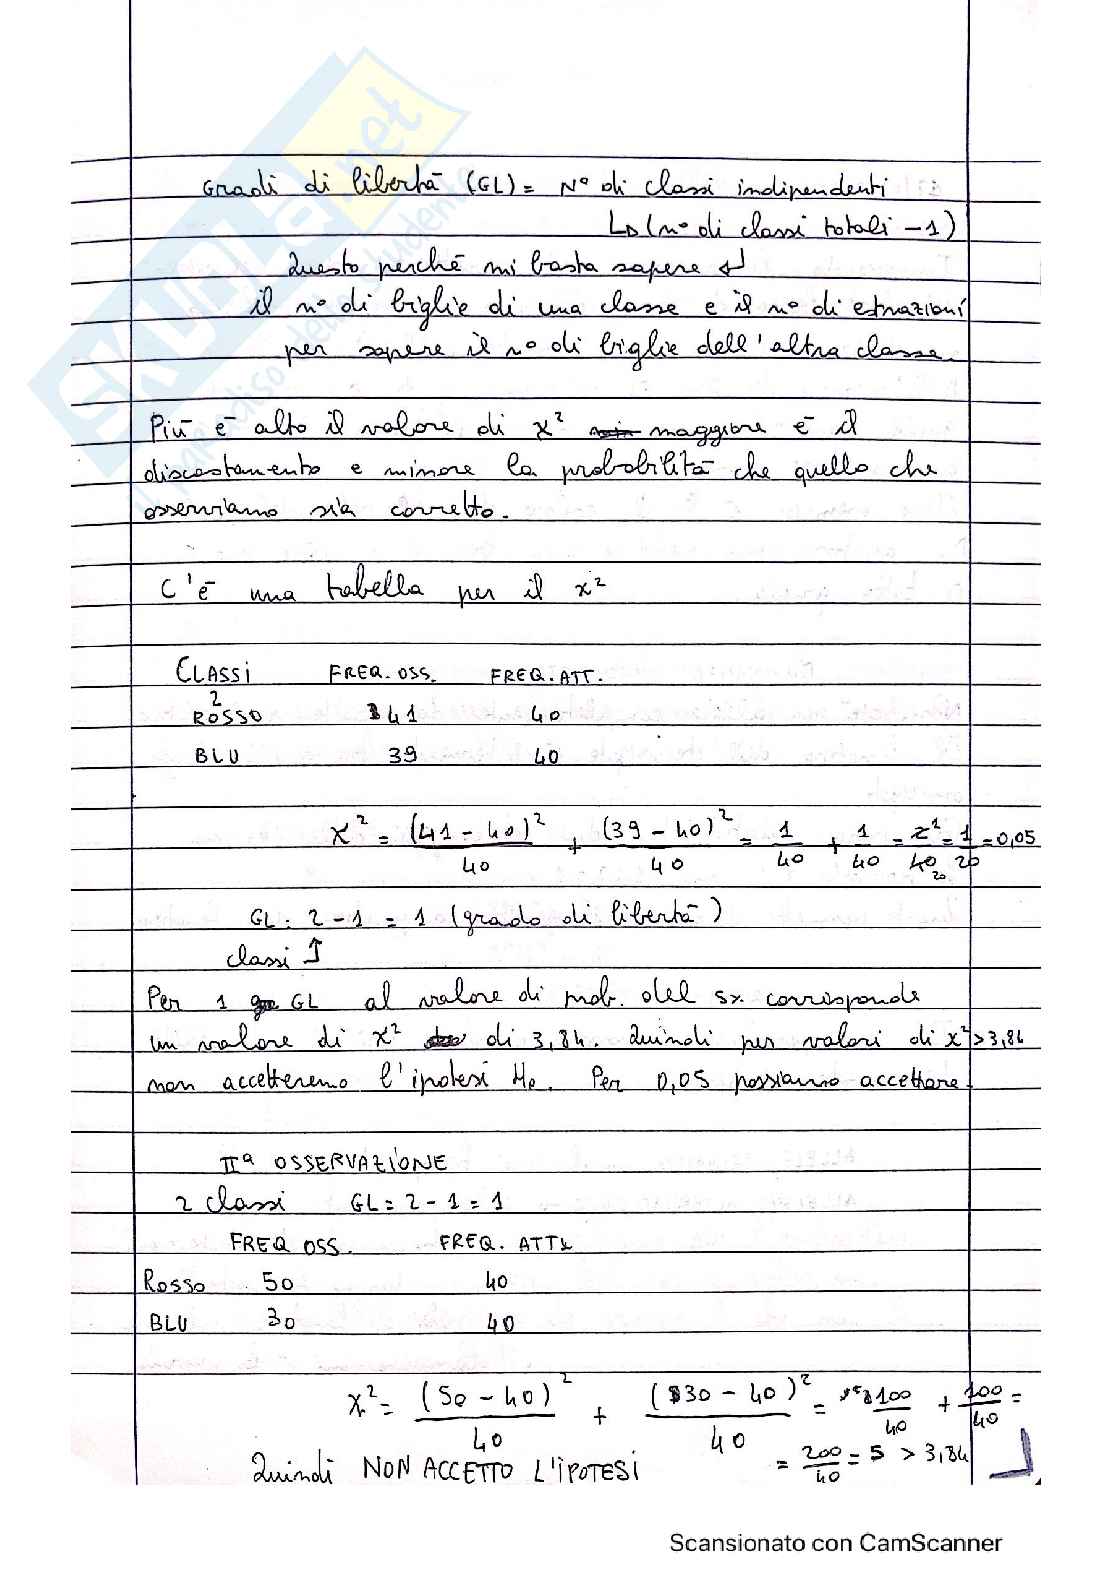 Gradi di libertà (GL) = N° di classi indipendenti
↳ (n° di classi totali - 1)
Questo perchè mi basta sapere ↲
il n° di biglie di una classe e il n° di estrazioni
per sapere il n° di biglie dell'altra classe.
Più è alto il valore di x² maggiore è il
discostamento e minore la probabilità che quello che
osserviamo sia corretto.
C'è una tabella per il x²
CLASSI FREQ. OSS. FREQ. ATT.
2
ROSSO 41 40
BLU 39 40
x² = (41 - 40)²/40 + (39 - 40)²/40 = 1/40 + 1/40 = 2/40 = 1/20 = 0,05
GL: 2 - 1 = 1 (grado di libertà)
classi ↑
Per 1 GL al valore di prob. del 5% corrisponde
un valore di x² di 3,84. Quindi per valori di x² > 3,84
non accetteremo l'ipotesi H₀. Per 0,05 possiamo accettare.
IIª OSSERVAZIONE
2 classi GL = 2 - 1 = 1
FREQ OSS. FREQ. ATT.
Rosso 50 40
BLU 30 40
x² = (50 - 40)²/40 + (30 - 40)²/40 = 100/40 + 100/40 =
= 200/40 = 5 > 3,84
Quindi NON ACCETTO L'IPOTESI
Scansionato con CamScanner
SKUOLA.net
il paradiso dello studente